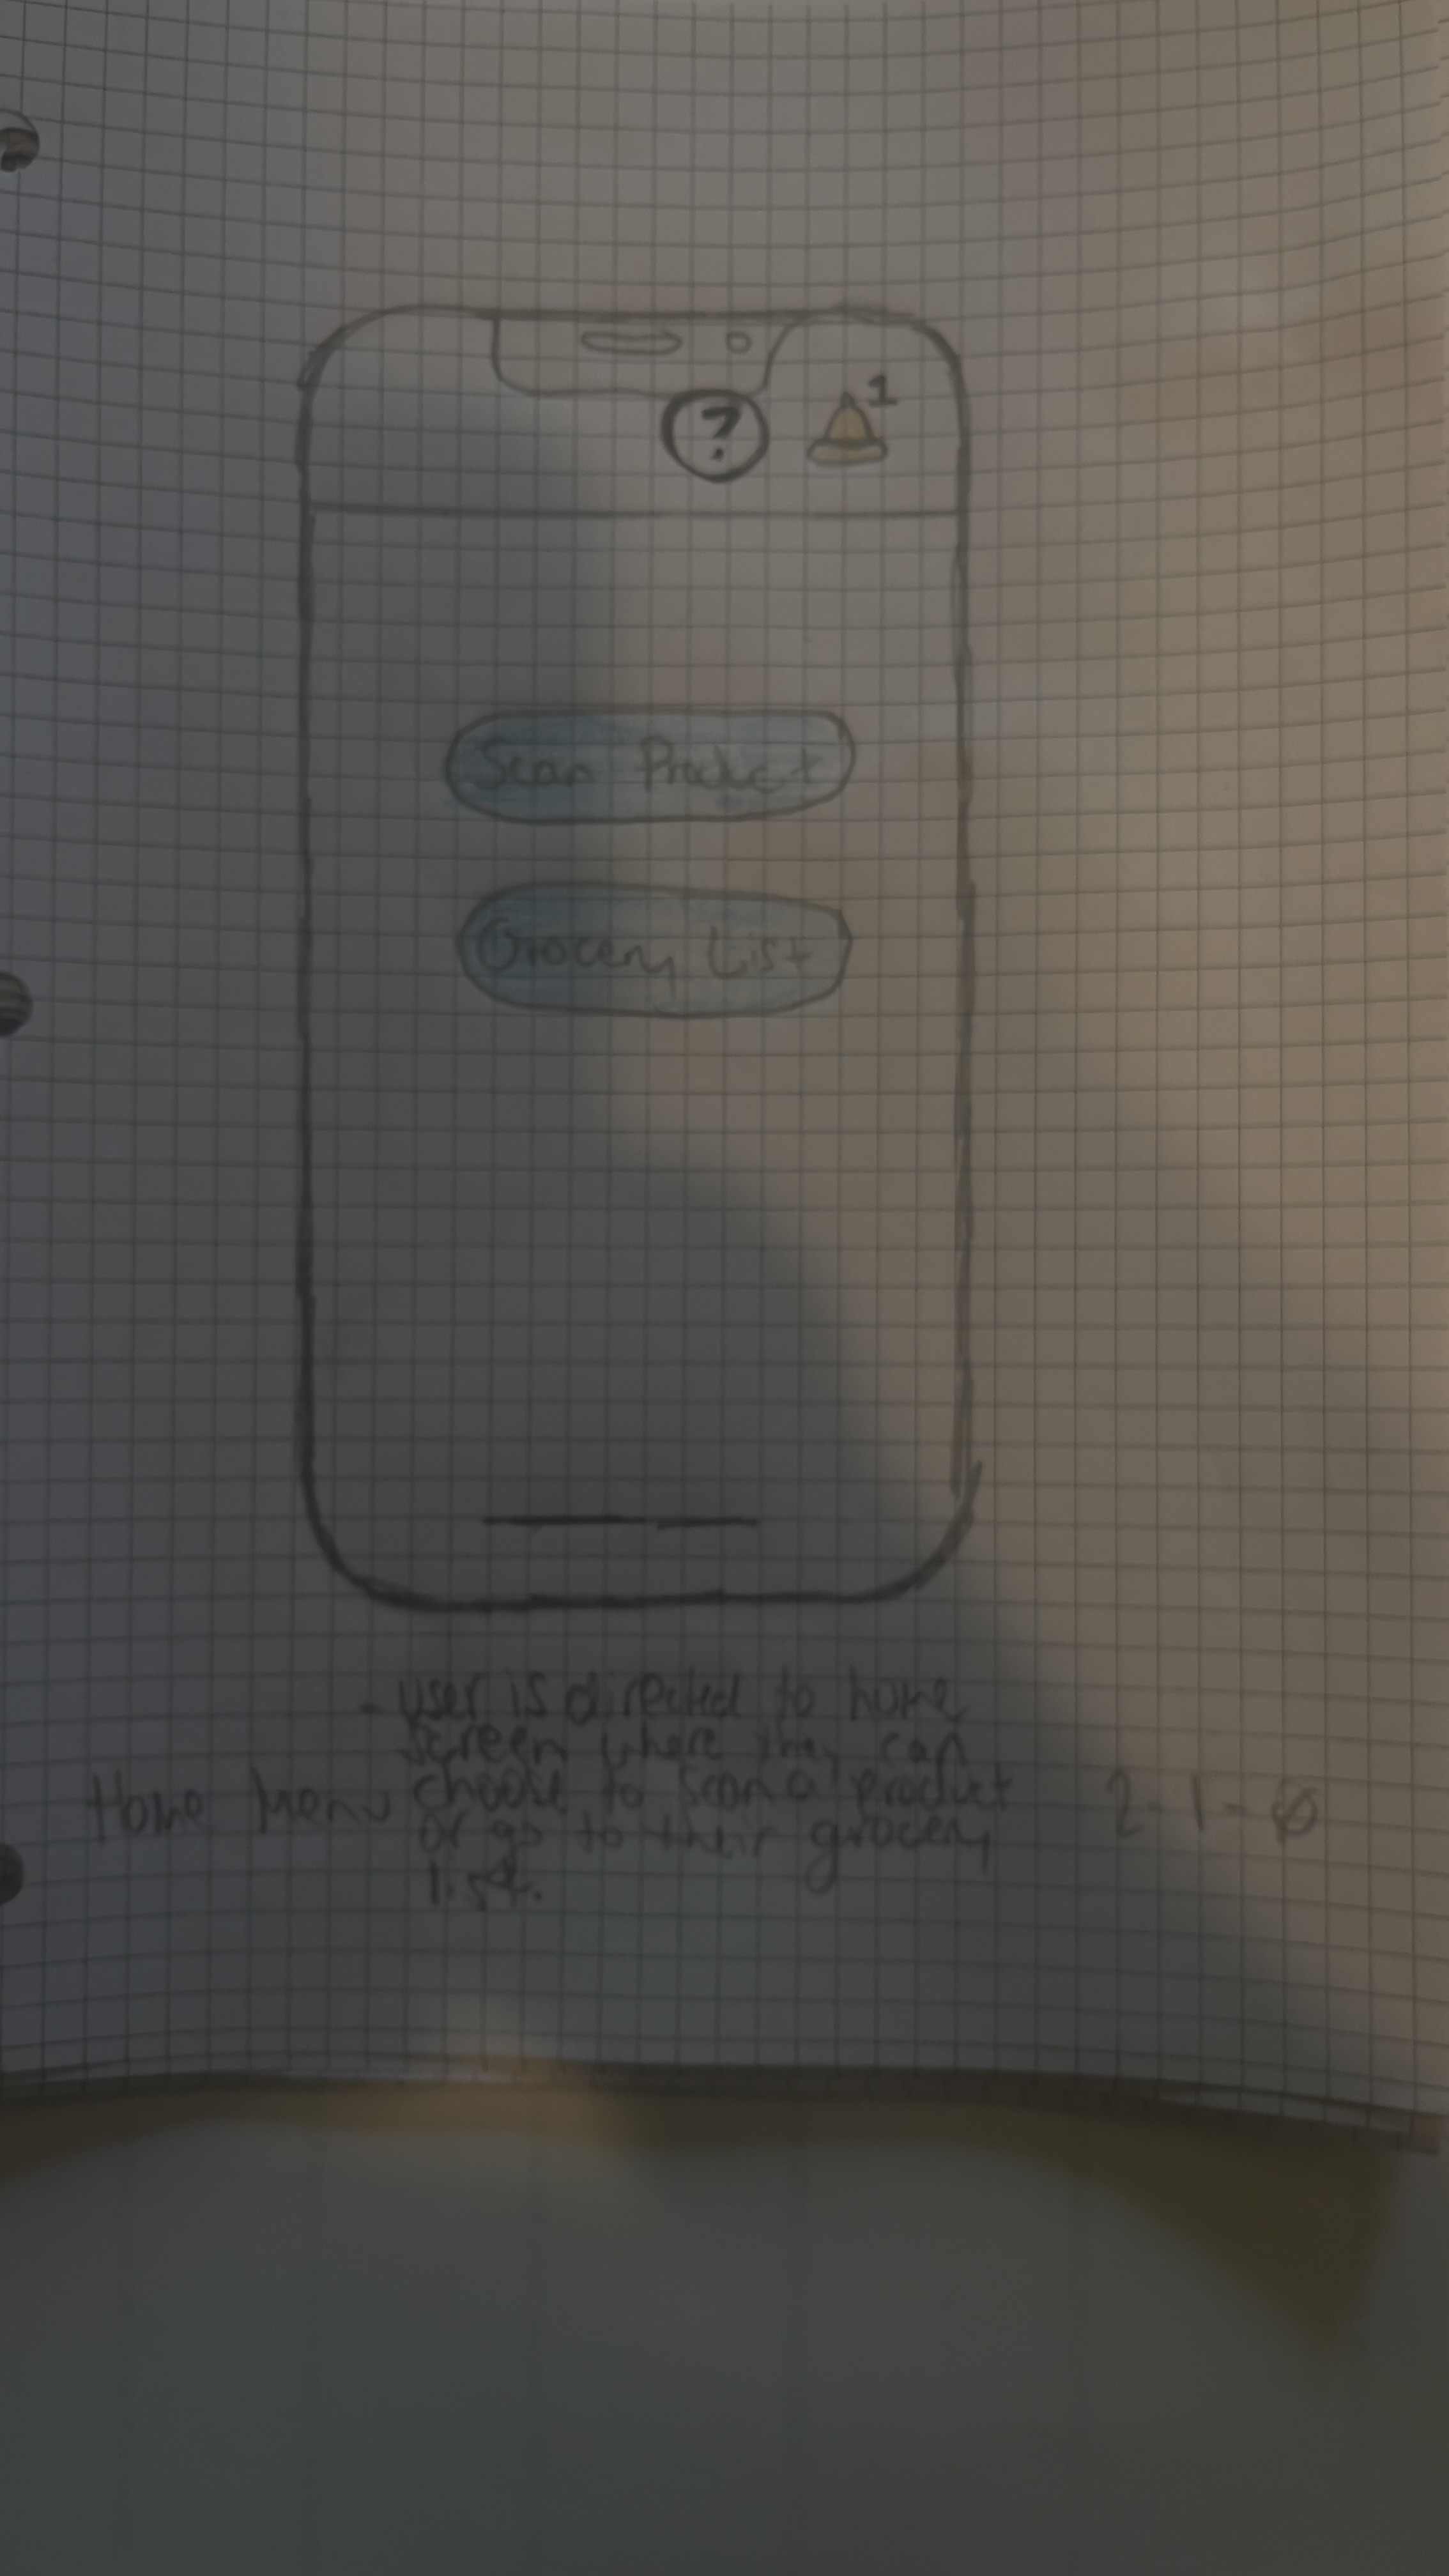 ?
1
Scan Product
Grocery List
- user is directed to home
screen where they can
Home Menu choose to scan a product 2-1-0
or go to their grocery
list.